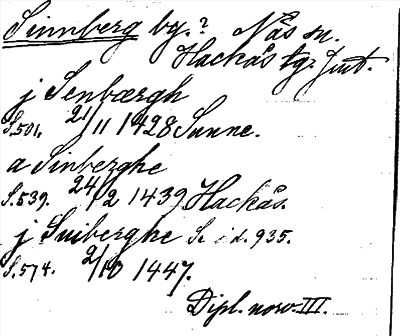 Sinnberg by.? Näs sn.
Hackås tg. Jmt.
j Senbærgh
S.501. 21/11 1428 Sunne.
a Sinberghe
S.539. 24/2 1439 Hackås.
j Suiberghe S. id. 935.
S.574. 2/10 1447.
Dipl. norv. III.